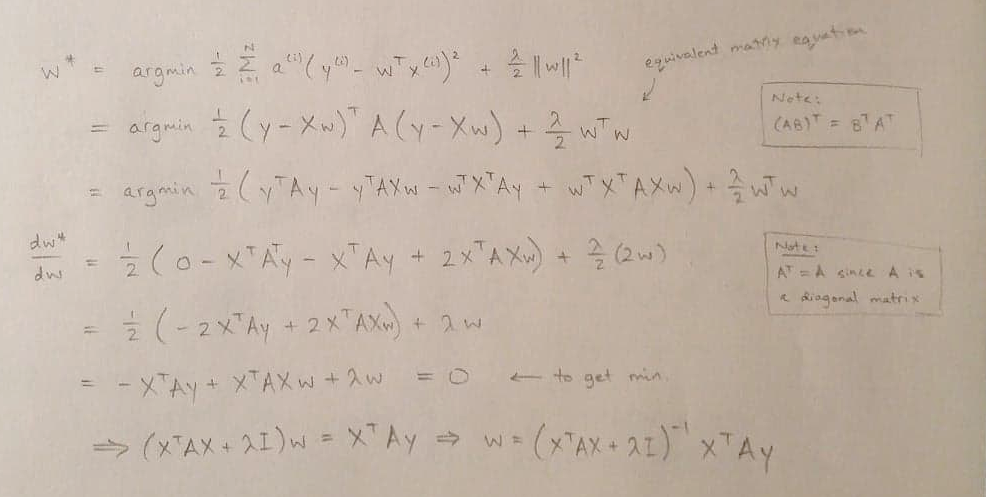 w* = argmin 1/2 Σ_{i=1}^{N} a^{(i)} (y^{(i)} - w^T x^{(i)})² + λ/2 ||w||²
equivalent matrix equation
= argmin 1/2 (y - Xw)^T A (y - Xw) + λ/2 w^T w
Note:
(AB)^T = B^T A^T
= argmin 1/2 (y^T A y - y^T A X w - w^T X^T A y + w^T X^T A X w) + λ/2 w^T w
dw*/dw = 1/2 (0 - X^T A^T y - X^T A y + 2 X^T A X w) + λ/2 (2w)
Note:
A^T = A since A is
a diagonal matrix
= 1/2 (-2 X^T A y + 2 X^T A X w) + λ w
= - X^T A y + X^T A X w + λ w = 0 ← to get min.
⇒ (X^T A X + λI) w = X^T A y ⇒ w = (X^T A X + λI)^{-1} X^T A y